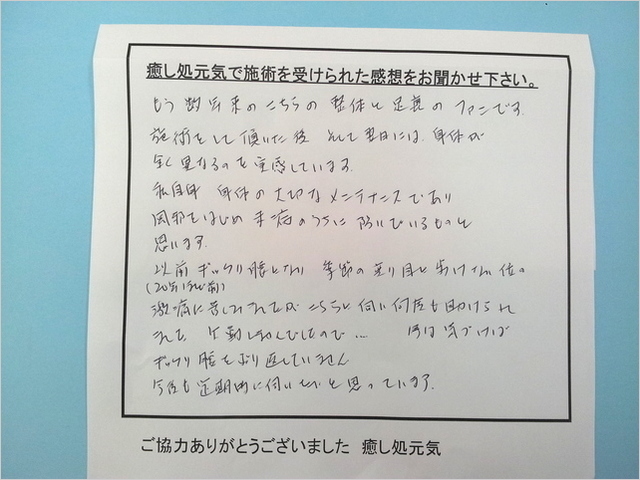 癒し処元気で施術を受けられた感想をお聞かせ下さい。
もう数年来のこちらの整体と足裏のファンです。
施術をして頂いた後 そして翌日には、身体が
全く異なるのを実感しています。
私自身 身体の大切なメンテナンスであり
風邪をはじめ未病のうちに防いでいるものと
思います。
以前ギックリ腰となり 季節の変り目と歩けない位の
(20年以上前)
激痛に苦しみましたが こちらに伺い何度も助けられ
ました。 ので… 今は気づけば
ギックリ腰をぶり返していません
今後も定期的に伺いたいと思っています。
ご協力ありがとうございました 癒し処元気